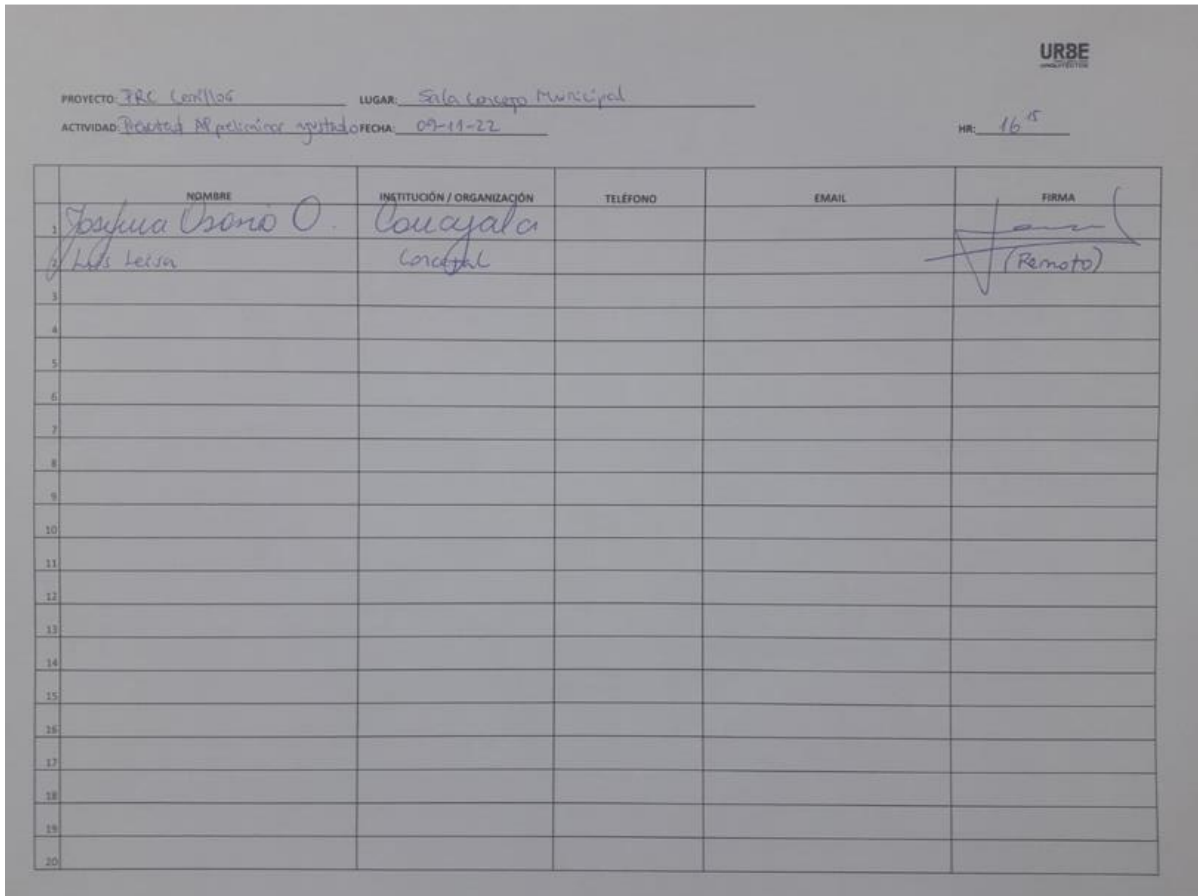 URBE
ARQUITECTOS
PROYECTO: PRC Cerrillos LUGAR: Sala Concejo Municipal
ACTIVIDAD: AP preliminar ajustado FECHA: 09-11-22 HR: 16 15
NOMBRE INSTITUCIÓN / ORGANIZACIÓN TELÉFONO EMAIL FIRMA
1 Osorio O. Concejala
2 Luis Concejal (Remoto)
3
4
5
6
7
8
9
10
11
12
13
14
15
16
17
18
19
20